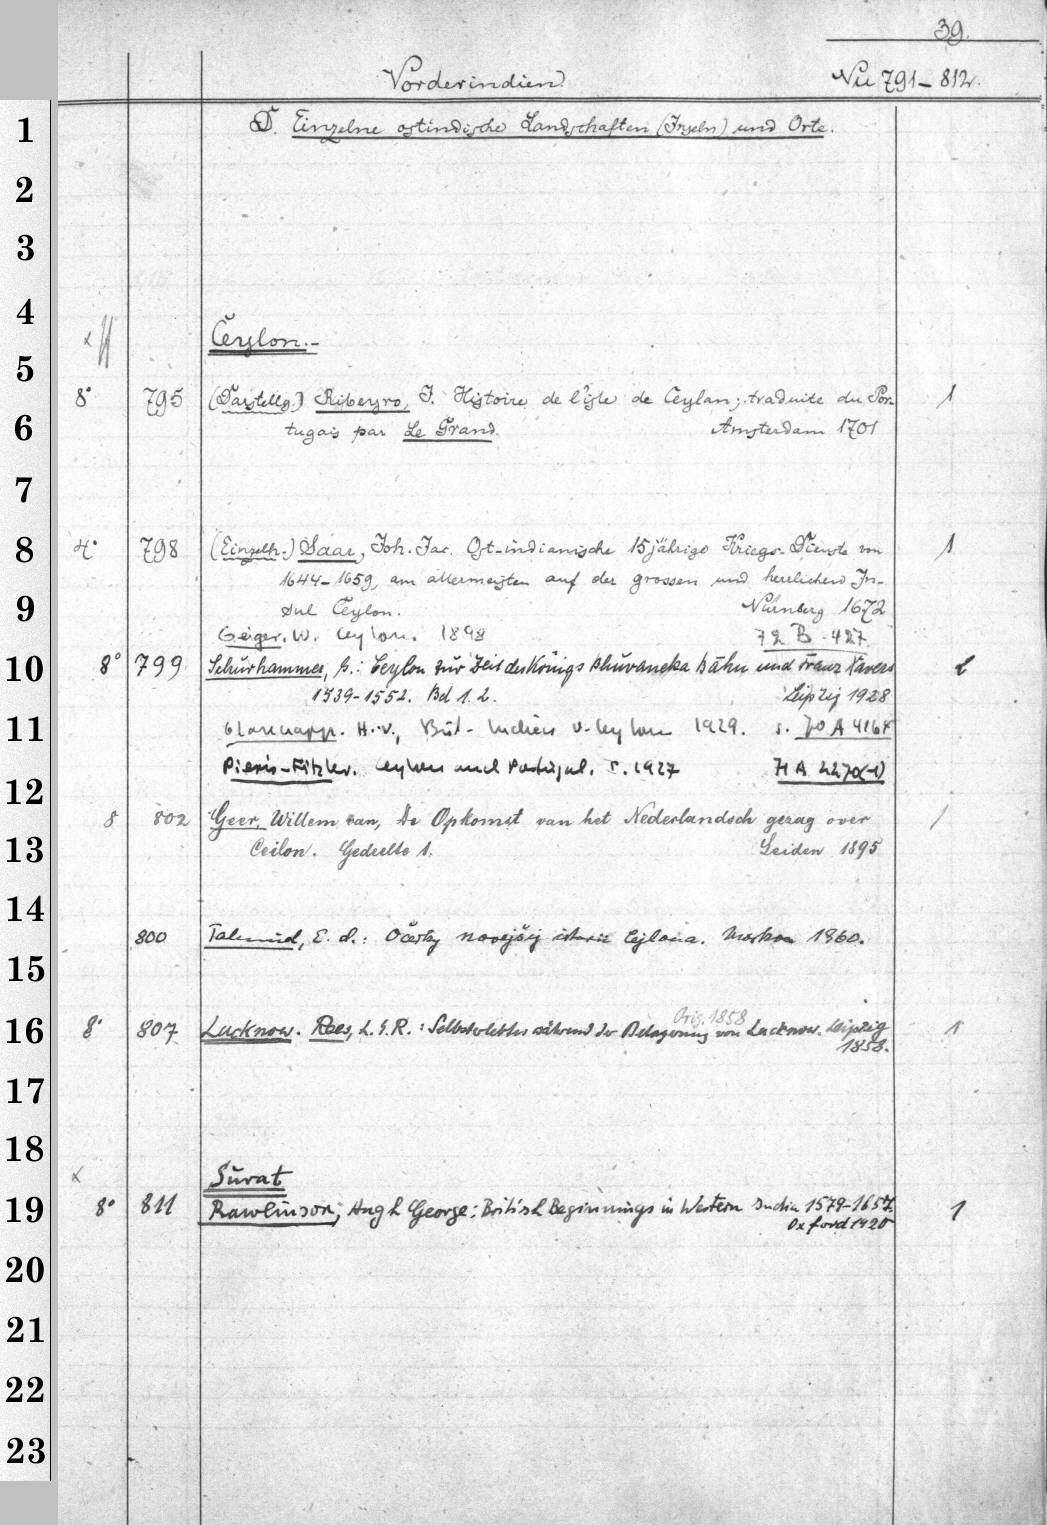 39.
Vorderindien Nu 791-812.
1
D. Einzelne ostindische Landschaften (Inseln) und Orte.
2
3
4
x
Ceylon.-
5
8° 795 (Darstellg.) Ribeyro, J. Histoire de l'isle de Ceylan; traduite du Por- 1
6
tugais par Le Grand. Amsterdam 1701
7
8
4° 798 (Einzelh.) Saar, Joh. Jac. Ost-indianische 15jährige Kriegs-Dienste von 1
1644-1659, am allermeisten auf der grossen und herrlichen In-
9
sul Ceylon. Nürnberg 1672
Geiger. W. Ceylon. 1898 72 B 427
10
8° 799 Schurhammer, G.: Ceylon zur Zeit des Königs Bhuvaneka Bāhu und Franz Xavers 2
1539-1552. Bd 1. 2. Leipzig 1928
11
Glasenapp. H. v., Brit.-Indien u. Ceylon 1929. s. 70 A 4164
12
Pieris-Fitzler. Ceylon and Portugal. 1927 71 A 2270(-1)
8 802 Geer, Willem van, De Opkomst van het Nederlandsch gezag over 1
13
Ceilon. Gedeelte 1. Leiden 1895
14
800 E. d.: Očerky novejšej istorii Cejlona. Moskva 1960.
15
Orig. 1858
16
8° 807 Lucknow. Rees, L. E. R.: Selbsterlebtes während der Belagerung von Lucknow. Leipzig 1
1858.
17
18
x
Surat
19
8° 811 Rawlinson, Hugh George: British Beginnings in Western India 1579-1657. 1
Oxford 1920
20
21
22
23